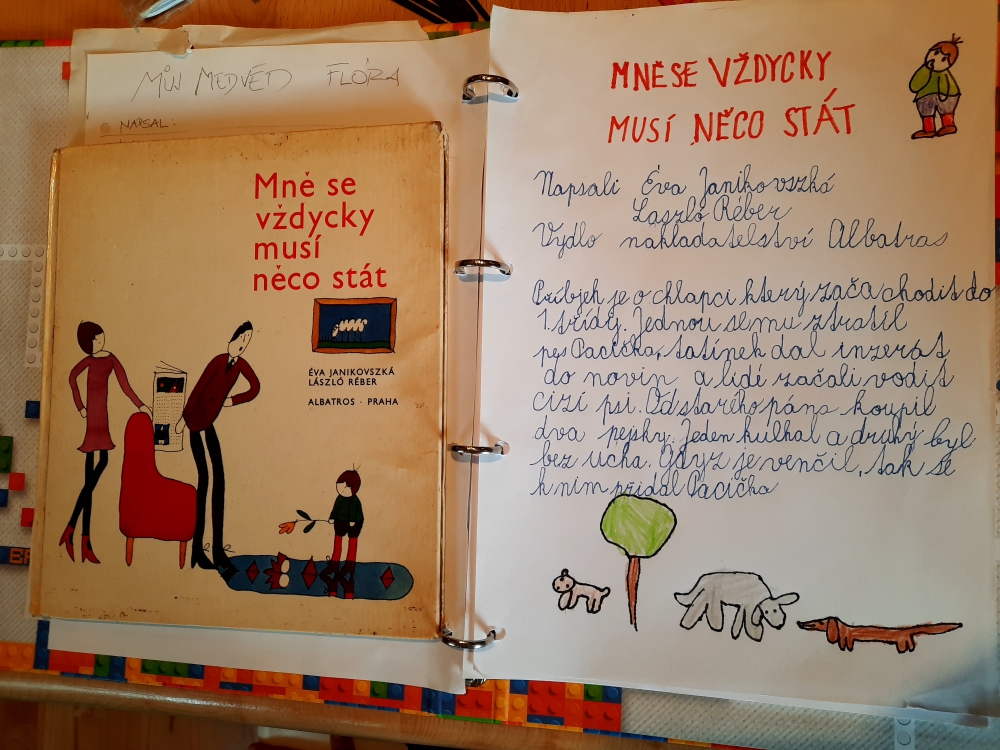 MŮJ MEDVĚD FLÓRA
NAPSAL:
Mně se
vždycky
musí
něco stát
ÉVA JANIKOVSZKÁ
LÁSZLÓ RÉBER
ALBATROS - PRAHA
MNĚSE VŽDYCKY
MUSÍ NĚCO STÁT
Napsali Éva Janikovszká
Laszló Réber
Vydlo nakladatelství Albatras
Příbjeh je o chlapci který zača chodit do
1. třídy. Jednou se mu ztratil
pes Pacička, tatínek dal inzerát
do novin a lidé začali vodit
cizí psi. Od staríhopána koupil
dva pejsky. Jeden kulhal a druhý byl
bez ucha. Gdyz je venčil, tak se
k nim přidal Pacička